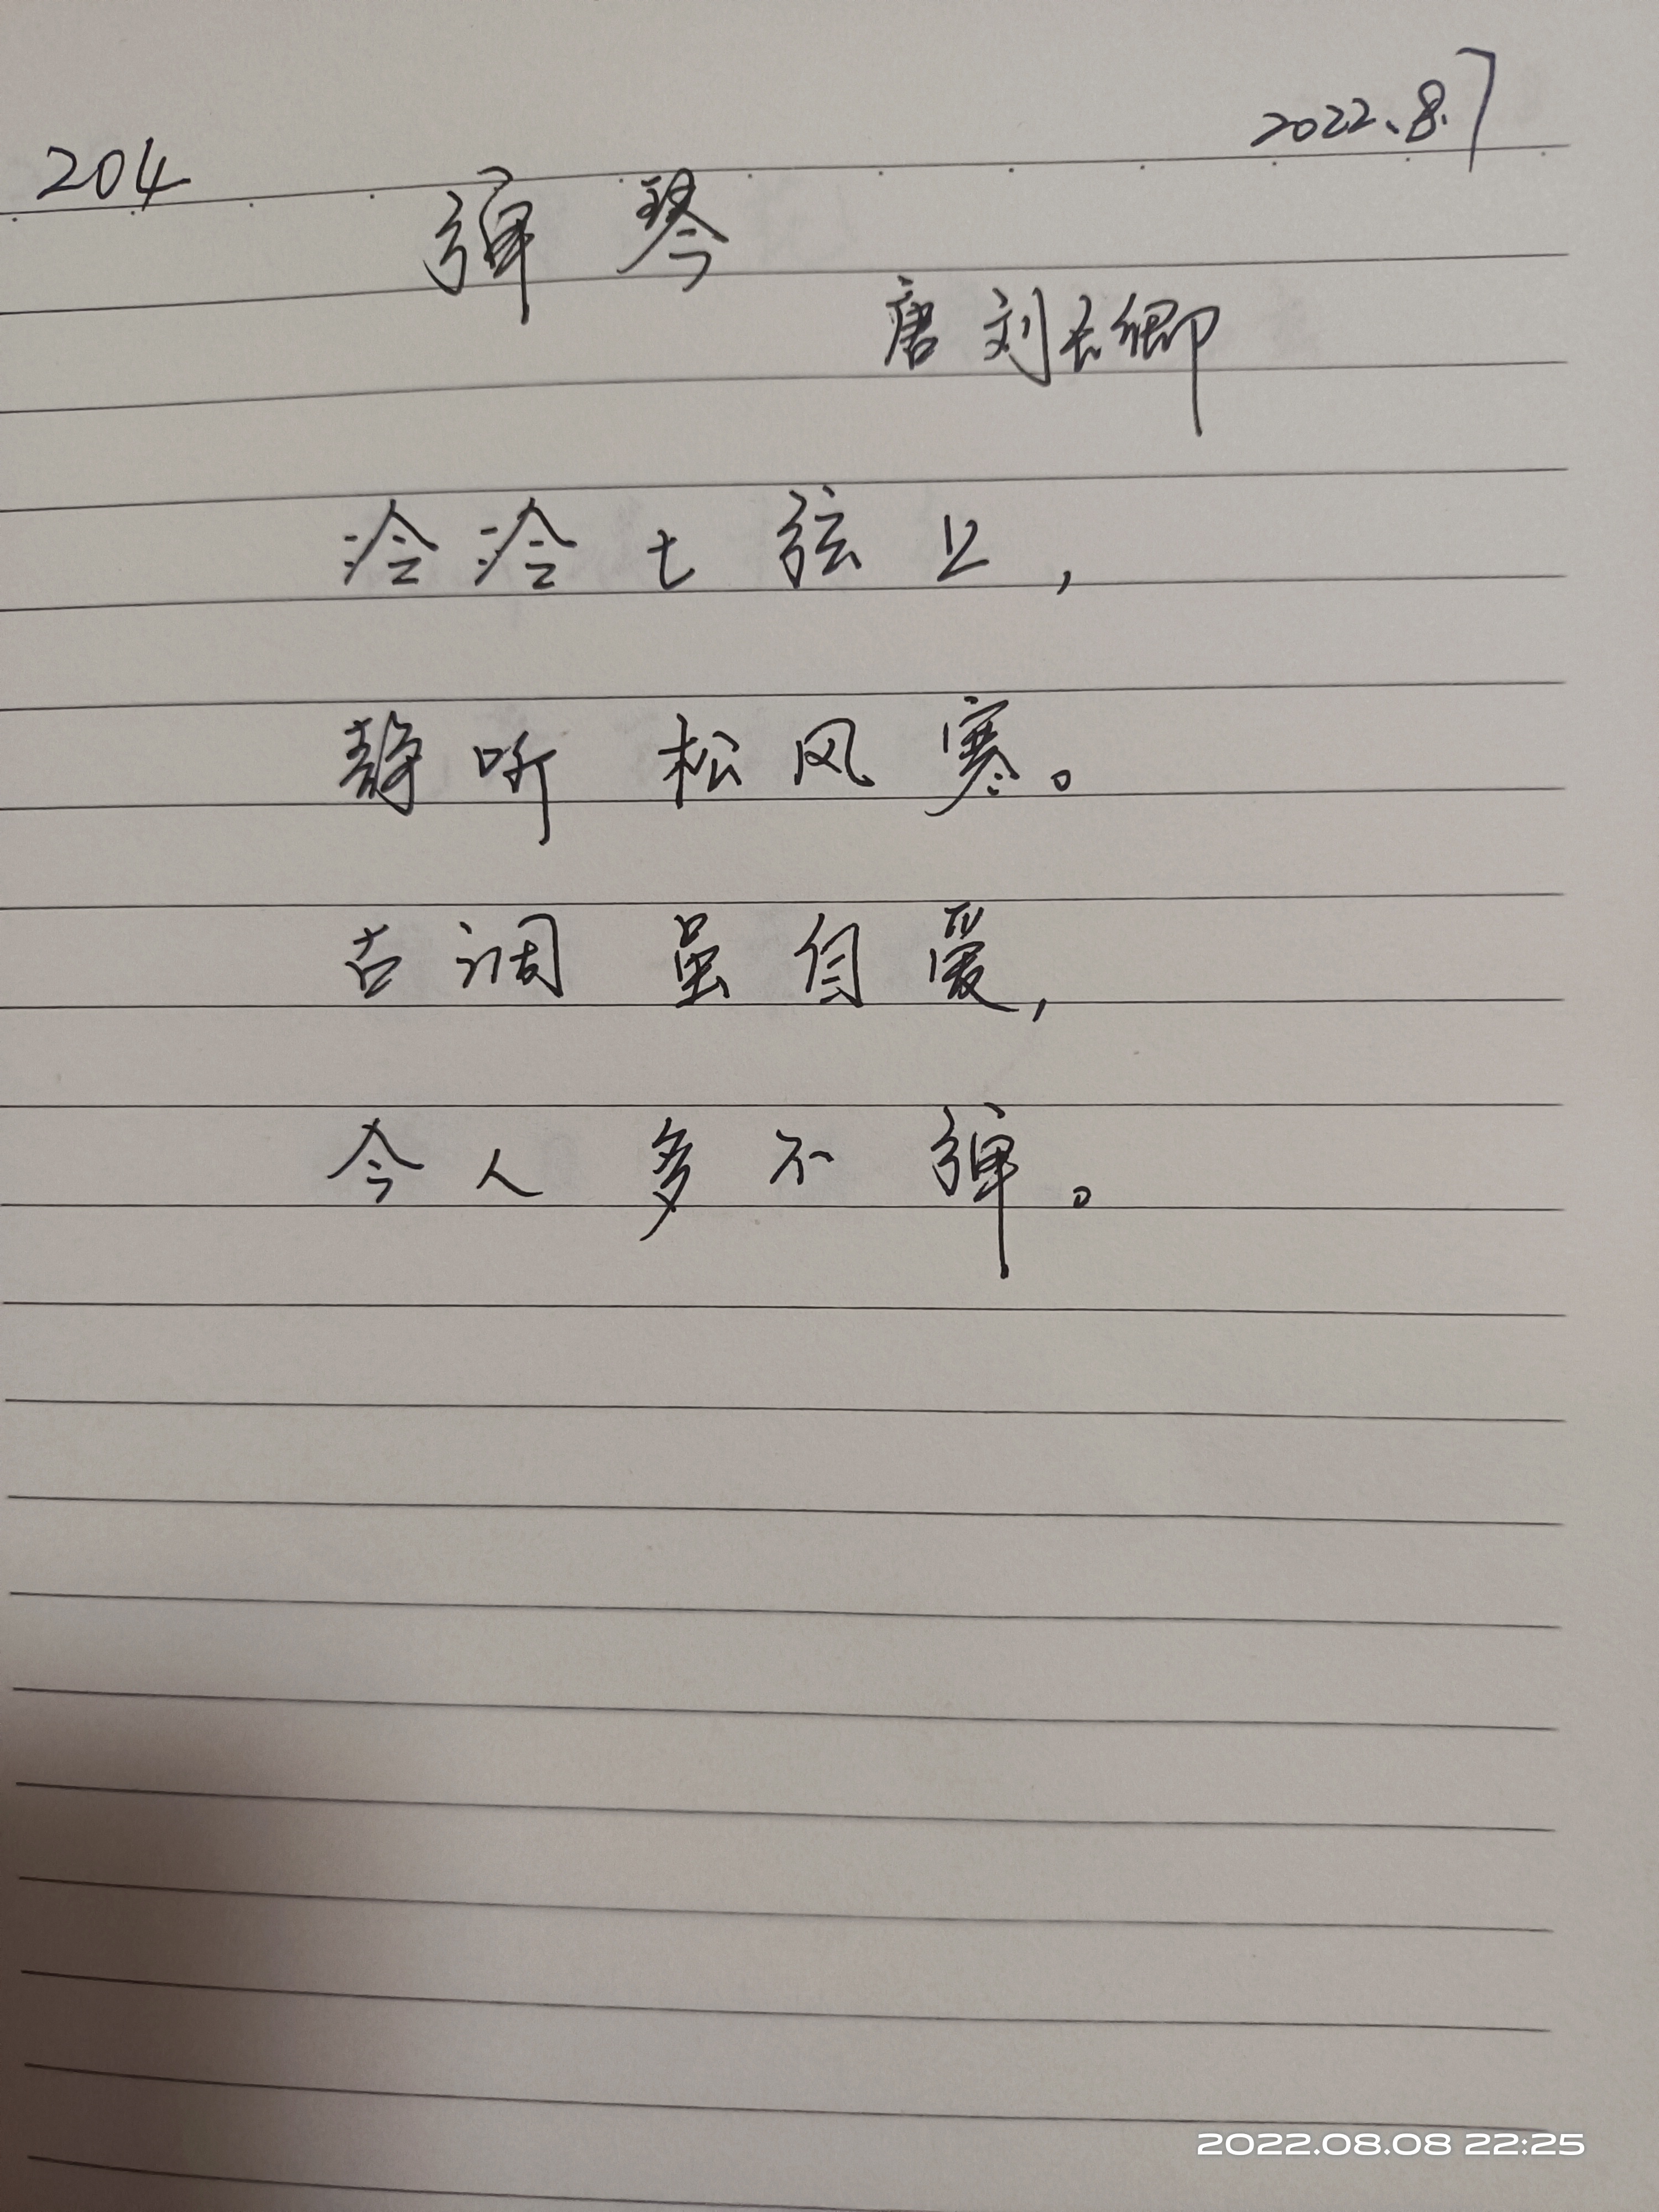 204
2022.8.7
弹琴
唐 刘长卿
泠泠七弦上，
静听松风寒。
古调虽自爱，
今人多不弹。
2022.08.08 22:25